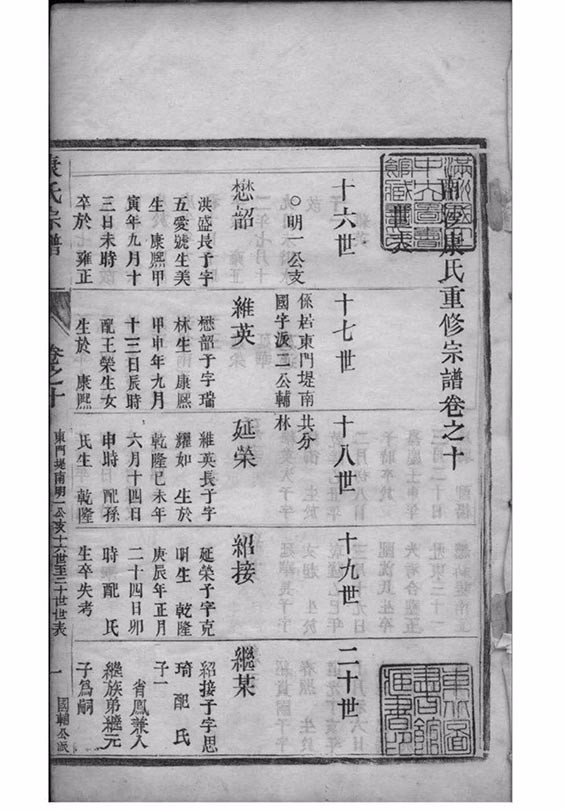 康氏重修宗譜卷之十
世表
十六世
十七世
十八世
十九世
二十世
○明一公支
係居東門堤南共分
國字派二公輔林
懋韶
洪盛長子字
五愛號生美
生 康熙甲
寅年九月十
三日未時
卒於 雍正
維英
懋韶子字瑞
林生 康熙
甲申年九月
十三日辰時
配王榮生女
生於 康熙
延榮
維英長子字
耀如 生於
乾隆己未年
六月十四日
申時 配孫
氏生 乾隆
紹接
延榮子字克
明生 乾隆
庚辰年正月
二十四日卯
時 配 氏
生卒失考
繼某
紹接子字思
琦 配 氏
子一
省鳳兼入
繼族弟繼元
子為嗣
康氏宗譜
卷之十
東門堤南明一公支十六世至二十世世表
一
國輔公派
東北圖
書館
藏書印